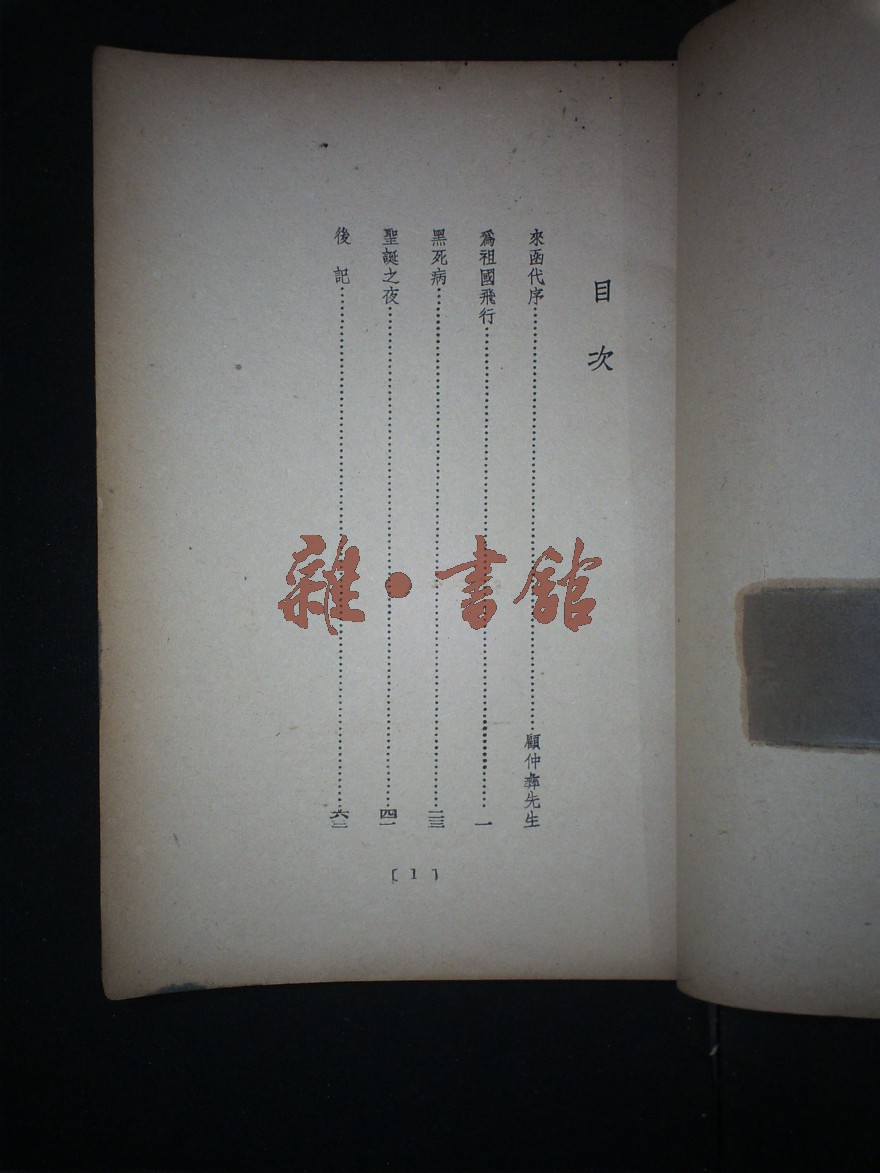 目次
來函代序……顧仲彝先生
爲祖國飛行……一
黑死病……二三
聖誕之夜……四一
後記……六三
[1]
雜·書館